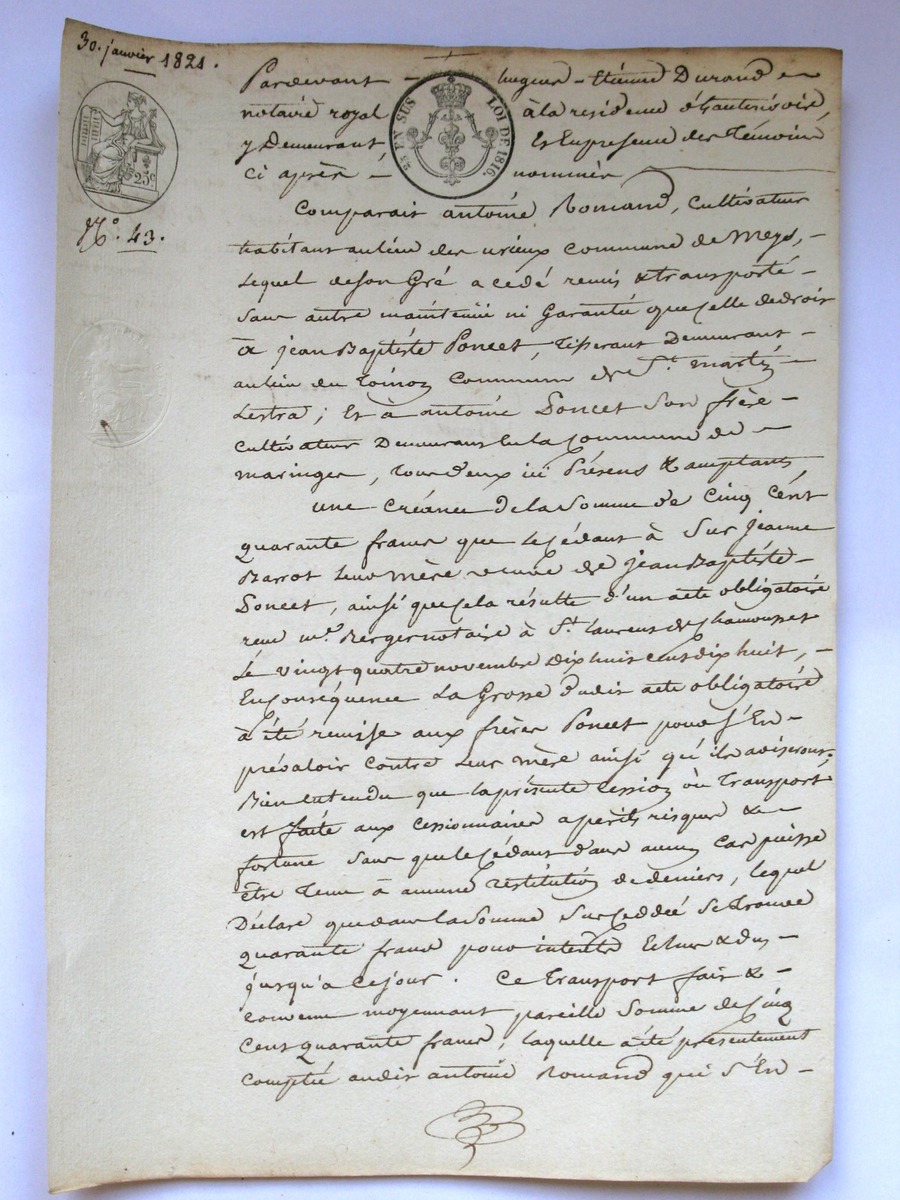 30. janvier 1821.
25 c
EN SUS
LOI DE 1816.
N.o 43.
Pardevant – hugues – Etienne Durand
notaire royal à la residence d'hauterivoire,
y Demeurant Et En presence des Témoins
ci après – nommés
Comparait antoine Romand, Cultivateur
habitant au lieu des urieux commune de Meys, –
Lequel de son Gré a cedé remis & transporté –
Sans autre maintenüe ni Garantie que celle de droit
à jean Baptiste Poncet, Tisserant Demeurant –
au lieu du Toinon Commune de St. martin –
Lestra; Et à antoine Poncet Son frère –
Cultivateur Demeurant en la Commune de –
maringes, tous deux ici Présens & acceptants,
une créance de la somme de Cinq Cent
quarante francs que le Cédant à Sur jeanne
Barrot leur mère veuve de jean Baptiste –
Poncet, ainsi que cela résulte d'un acte obligatoire
reçu me. Berger notaire à St. laurent de chamousset
Le vingt quatre novembre Dix huit cent dix huit, –
En conséquence La Grosse dudit acte obligatoire
à été remise aux frères Poncet pour s'En –
prévaloir contre leur mère ainsi qu'ils aviseront;
Bien Entendu que la présente Cession ou Transport
est faite aux cessionnaires a périls risques & –
fortune Sans que le Cédant dans aucun cas puisse
être Tenu à aucune restitution de deniers, lequel
Déclare que dans la Somme Sus Ceddée se trouve
quarante francs pour intérêts Echus & dus –
jusqu'a ce jour. Ce Transport fait & –
convenu moyennant pareille Somme de Cinq
Cent quarante francs, laquelle a été présentement
comptée audit antoine Romand qui s'En –